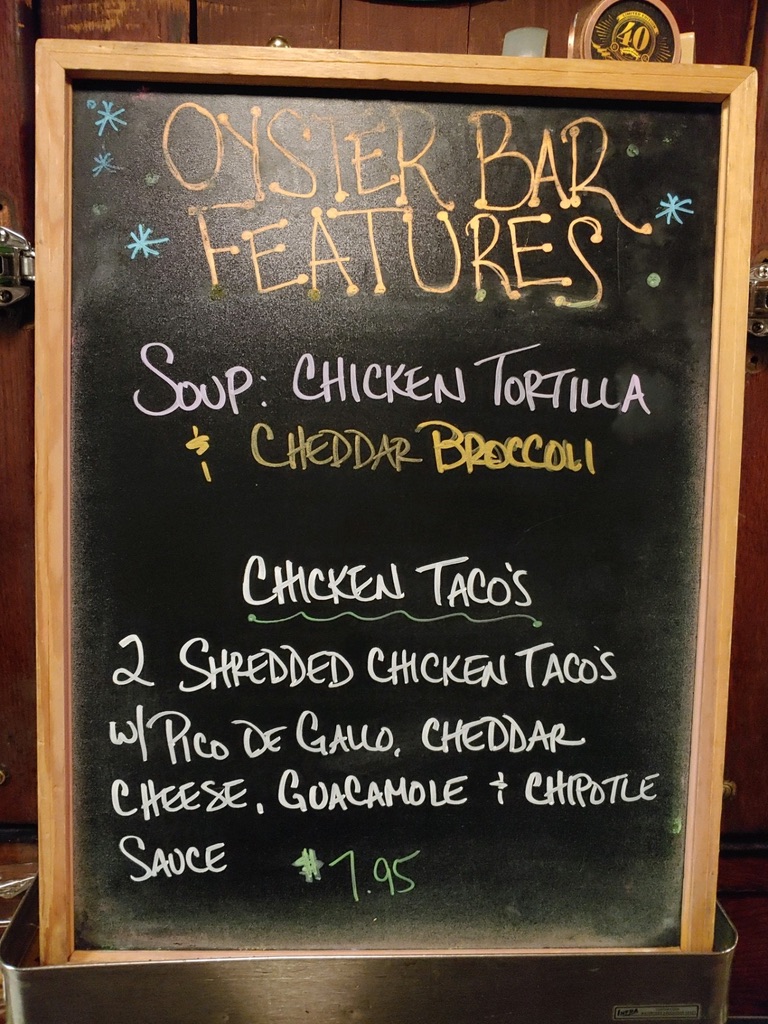 LIMITED EDITION
40
OYSTER BAR
FEATURES
SOUP: CHICKEN TORTILLA
& CHEDDAR BROCCOLI
CHICKEN TACO'S
2 SHREDDED CHICKEN TACO'S
W/ PICO DE GALLO, CHEDDAR
CHEESE, GUACAMOLE & CHIPOTLE
SAUCE $7.95